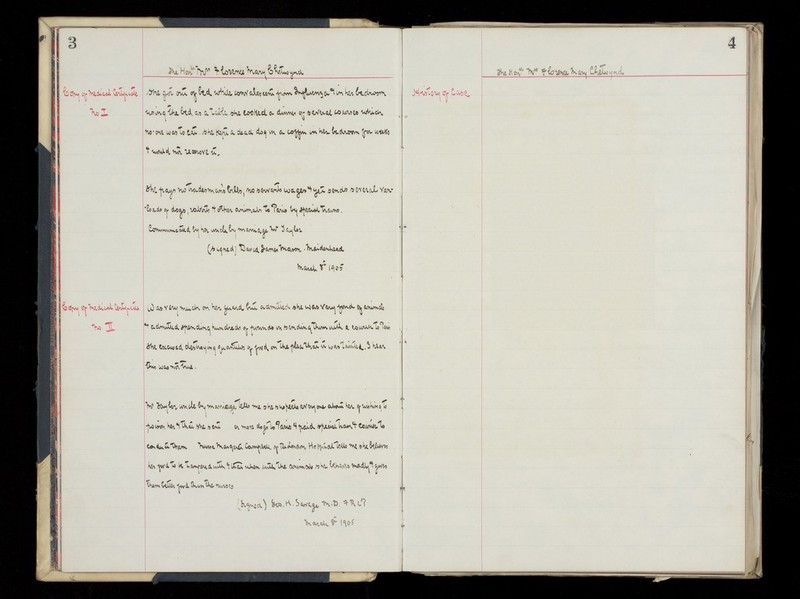 3
The Hon. Mrs Florence Mary Chetwynd
Copy of Medical Certificate
No I
She got out of bed while convalescent from Influenza & in her bedroom
using the bed as a table she cooked a dinner of several courses which
no one was to eat. She kept a dead dog in a coffin in her bedroom for weeks
& would not remove it.
She pays no tradesman's bills, no servants wages & yet sends several van
loads of dogs, rabbits & other animals to Paris by special trains.
Communicated by her uncle by marriage Mr Taylor
(Signed) David James Mason. Maidenhead
March 8th 1905
Copy of Medical Certificate
No II
Was very much on her guard but admitted she was very fond of animals
& admitted spending hundreds of pounds in sending them with a courier to Paris
She excused destroying quantities of food on the plea that it was tainted. I hear
this was not true.
Mr Taylor uncle by marriage tells me she suspects everyone about her of wishing to
poison her & that she sent or more dogs to Paris & paid special train & courier to
conduct them Nurse Margaret Campbell of the London Hospital tells me she believes
her food to be tampered with & that when with the animals she behaves madly & gives
them better food than the nurses
(Signed) Geo. H. Savage M.D. F.R.C.P.
March 8th 1905
4
The Hon. Mrs Florence Mary Chetwynd
History of Case